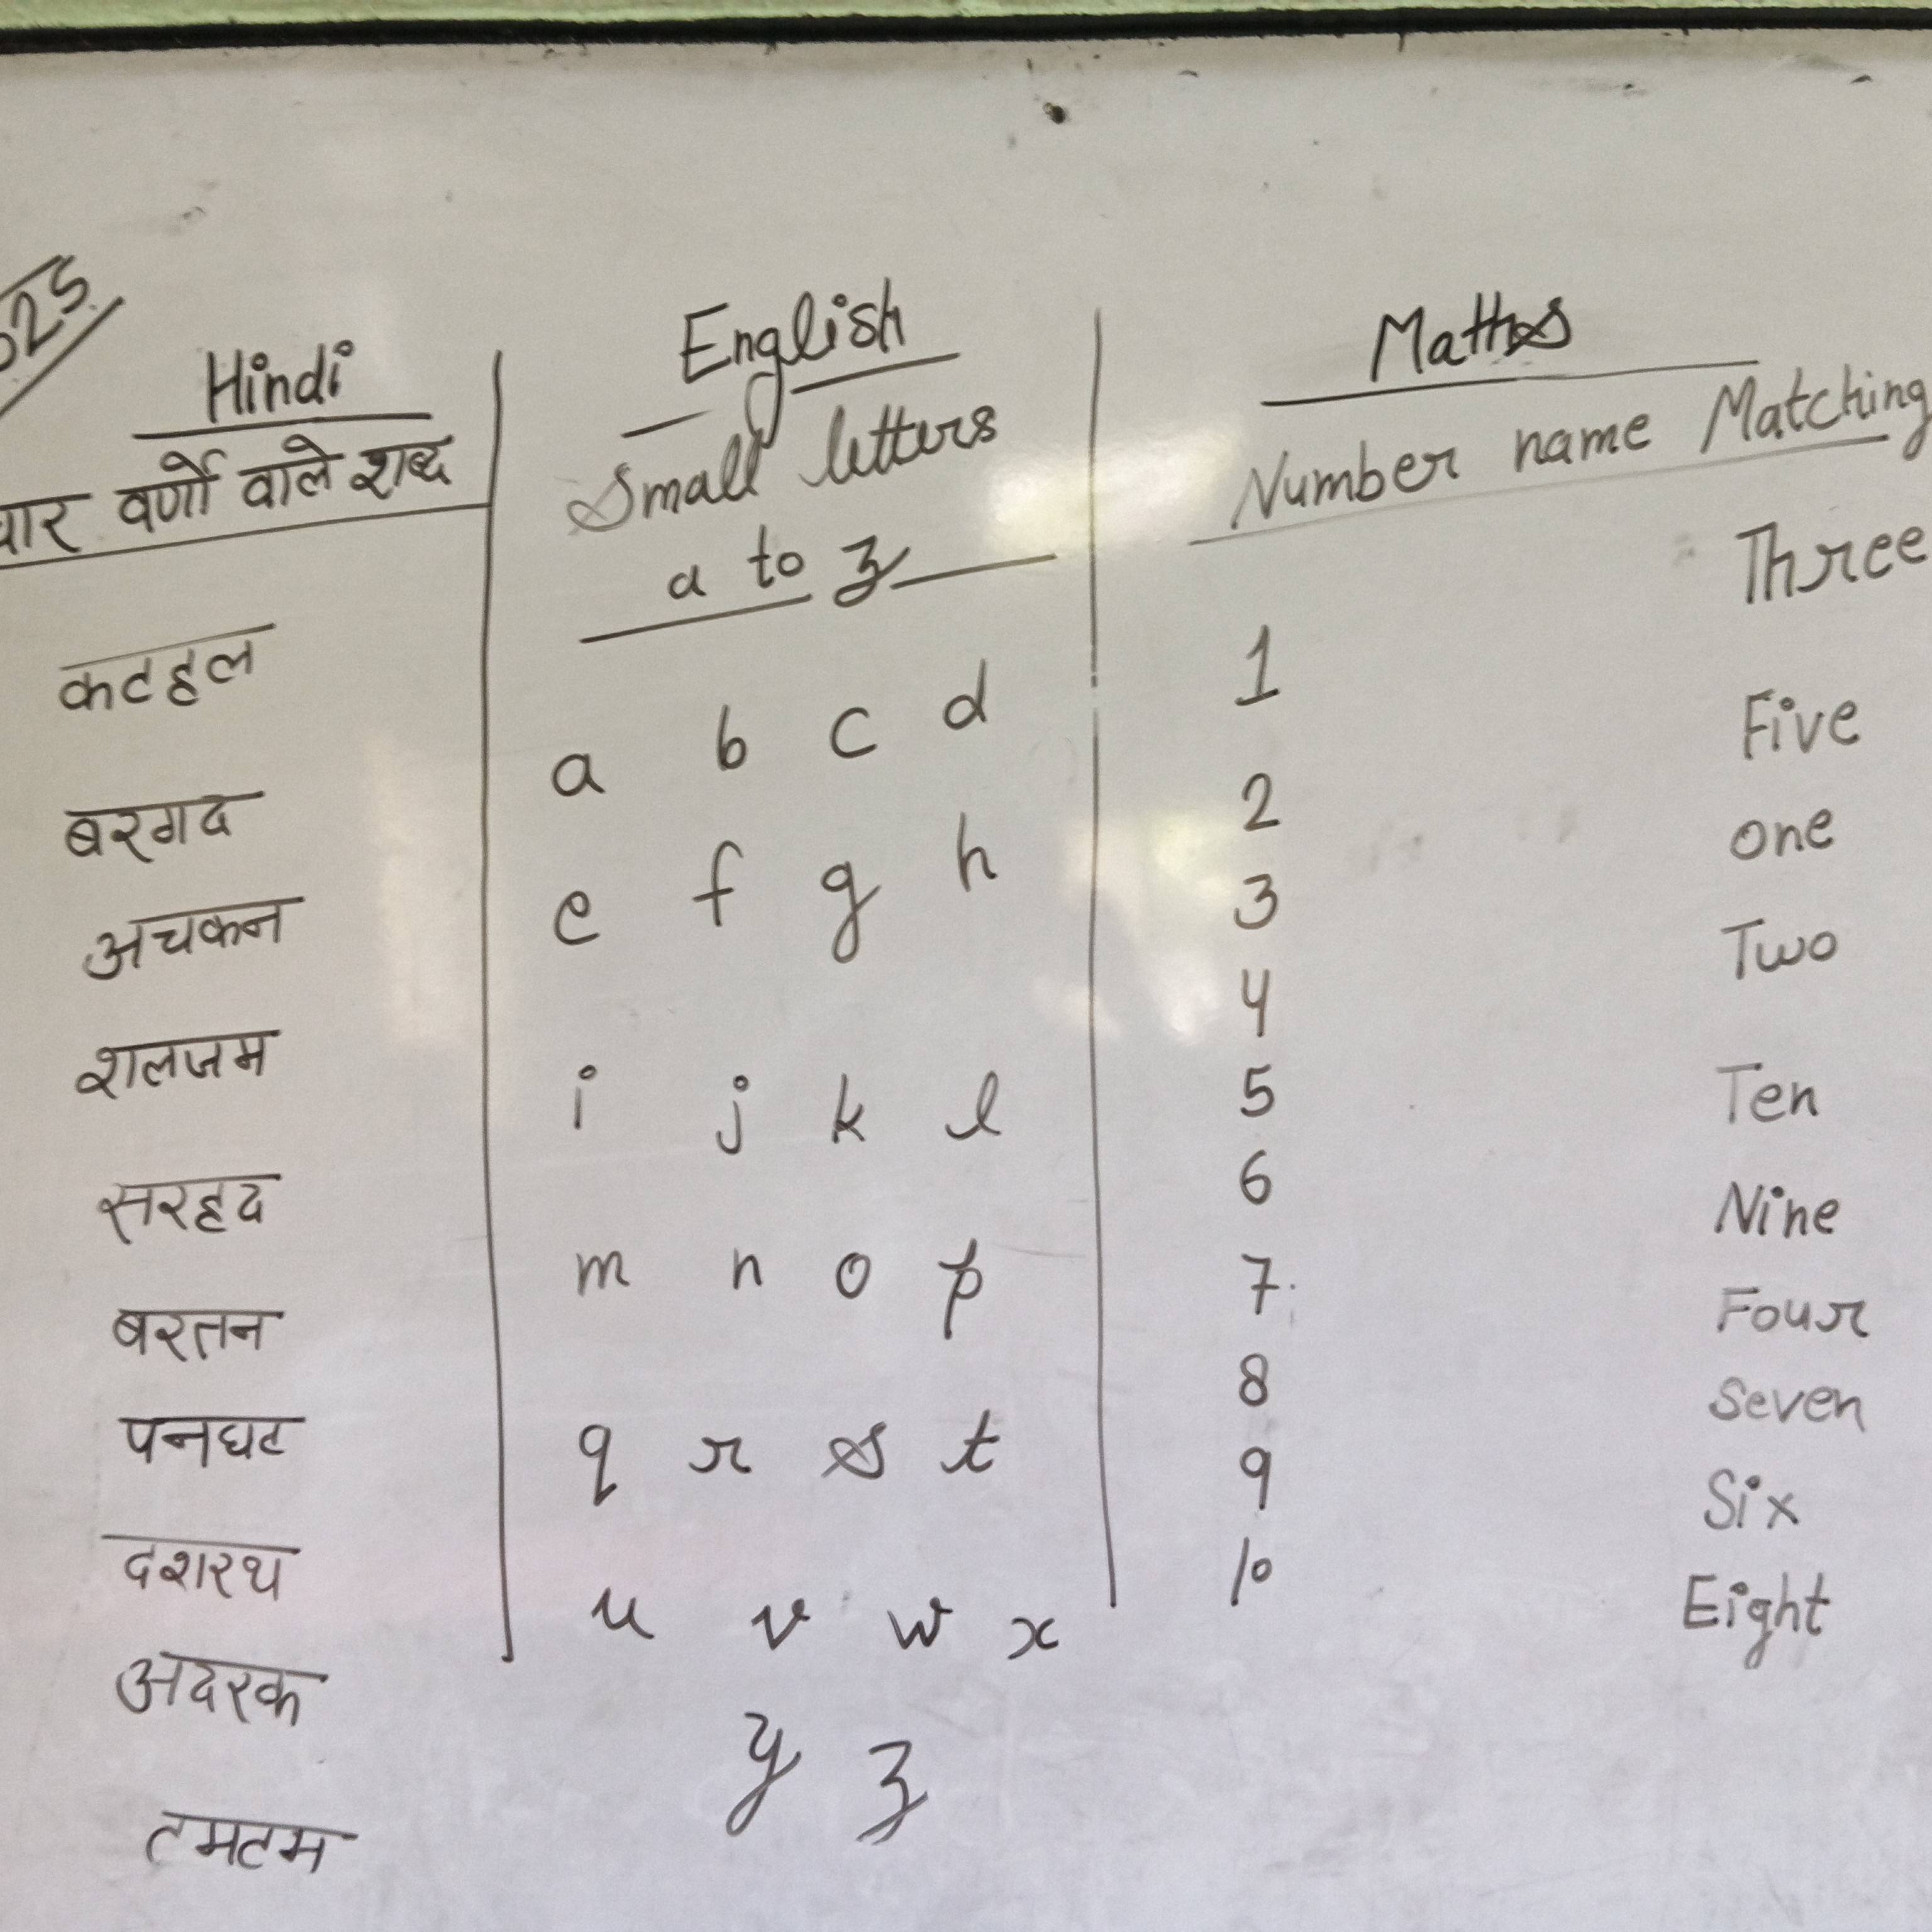 Hindi
चार वर्णो वाले शब्द
कटहल
बरगद
अचकन
शलजम
सरहद
बरतन
पनघट
दशरथ
अदरक
टमटम
English
Small letters
a to z
a b c d
e f g h
i j k l
m n o p
q r s t
u v w x
y z
Maths
Number name Matching
Three
1
Five
2
one
3
Two
4
5
Ten
6
Nine
7
Four
8
Seven
9
Six
10
Eight